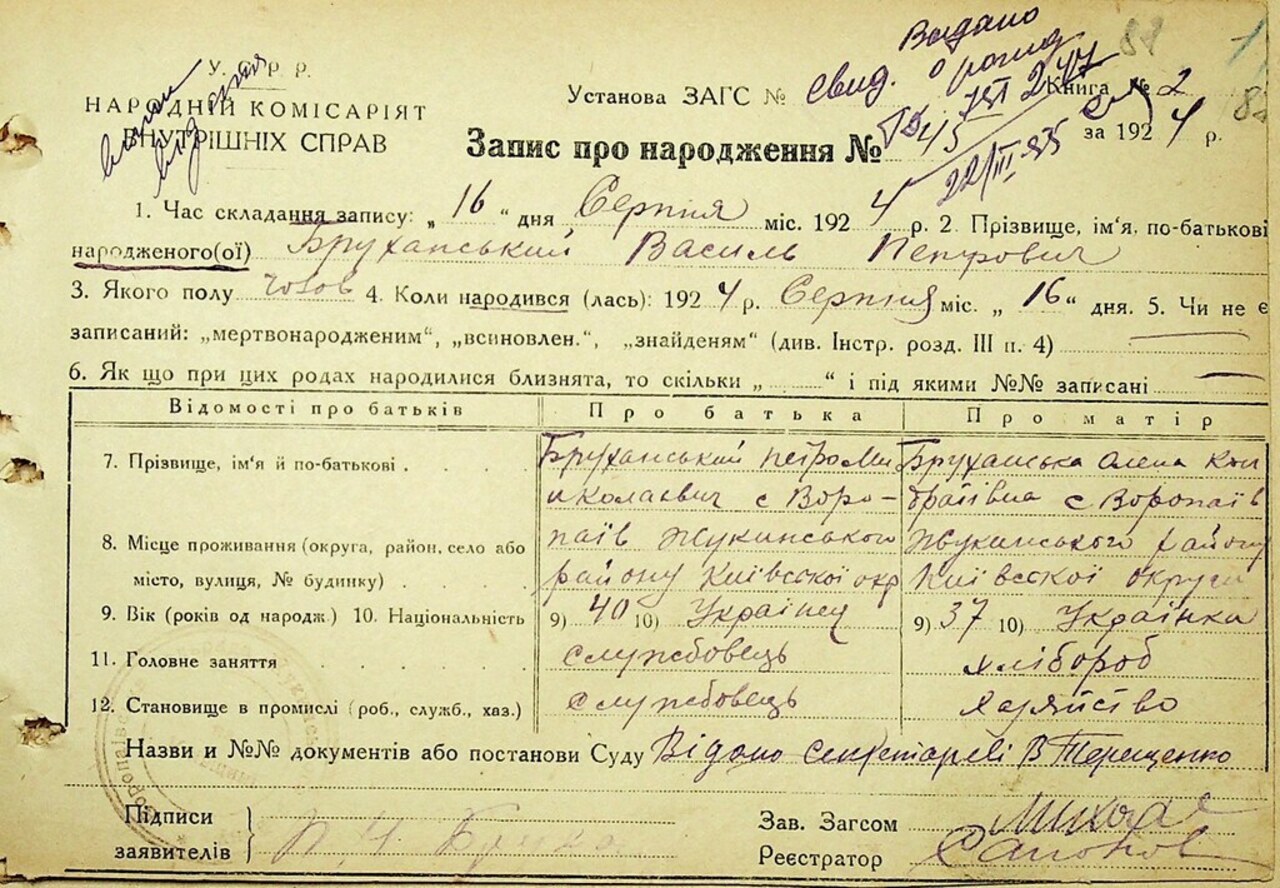 Видано
свид. о рожд
У. С. Р. Р.
НАРОДНІЙ КОМІСАРІЯТ
ВНУТРІШНІХ СПРАВ
Установа ЗАГС №
Книга № 2
Запис про народження № 45
за 1924 р.
22/III-35
1. Час складання запису: „16“ дня Серпня міс. 1924 р. 2. Прізвище, ім'я, по-батькові
народженого(ої) Бруханський Василь Петрович
3. Якого полу чолов 4. Коли народився (лась): 1924 р. Серпня міс. „16“ дня. 5. Чи не є
записаний: „мертвонародженим“, „всиновлен.“, „знайденям“ (див. Інстр. розд. III п. 4)
6. Як що при цих родах народилися близнята, то скільки „ “ і під якими №№ записані
Відомості про батьків Про батька Про матір
7. Прізвище, ім'я й по-батькові Бруханський Петро Ми Бруханська Олена Кон
николаевич с Воро- с Воропаїв
8. Місце проживання (округа, район, село або паїв Жукинського Жукинського району
місто, вулиця, № будинку) району Київської окр Київської округи
9. Вік (років од народж.) 10. Національність 9) 40 10) Українец 9) 37 10) Українка
11. Головне заняття службовець хлібороб
12. Становище в промислі (роб., служб., хаз.) службовець
Назви и №№ документів або постанови Суду Відомо Секретареві В Терещенко
Підписи
заявителів
Зав. Загсом
Реєстратор